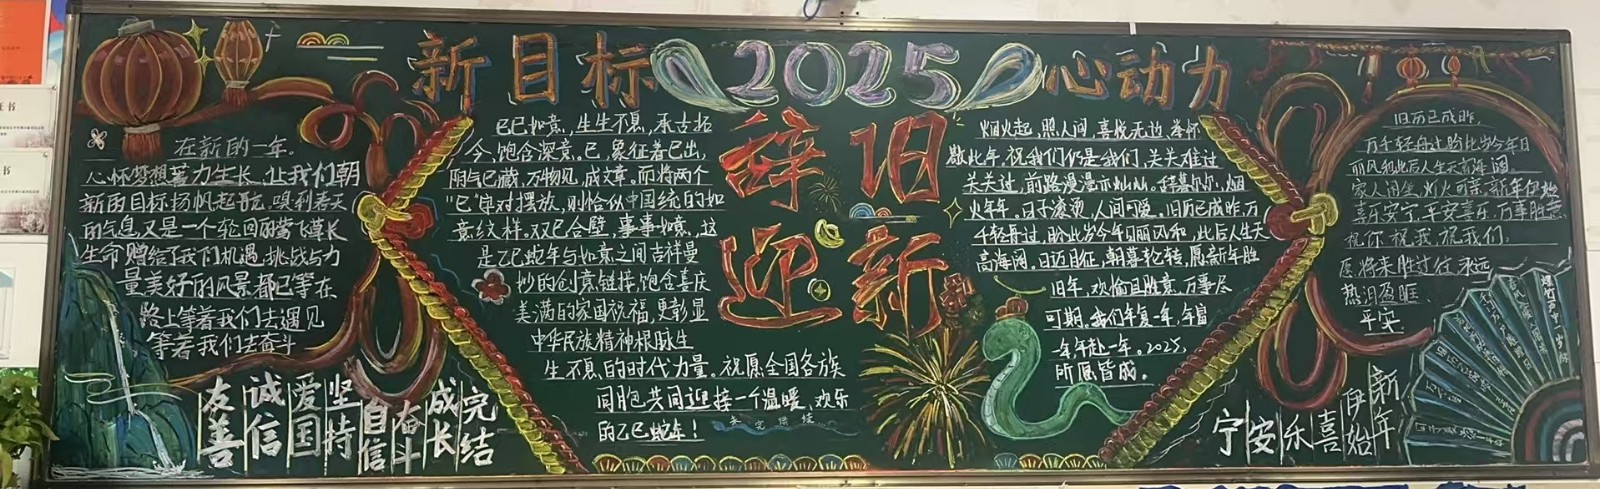 新目标 2025 心动力
辞旧
迎新
在新的一年。
心怀梦想著力生长,让我们朝
新的目标扬帆起航。
的气息又是一个轮回的莺飞草长
生命赠给了我们机遇,挑战与力
量美好的风景都已等在
路上等着我们去遇见
等着我们去奋斗
友善
诚信
爱国
坚持
自信
奋斗
成长
完结
巳巳如意,生生不息,承古拓
今,饱含深意。巳,象征着已出,
阴气已藏,万物见,成文章。而将两个
"巳"字对摆放,则恰似中国统的如
意纹样。双巳合璧,事事如意,这
是乙巳蛇年与如意之间吉祥曼
妙的创意链接,饱含喜庆
美满的家国祝福,更彰显
中华民族精神根脉生
生不息的时代力量。祝愿全国各族
同胞共同迎接一个温暖、欢乐
的乙巳蛇年!
未完待续
烟火起,照人间,喜悦无边,举杯
敬此年,祝我们仍是我们,关关难过
关关过,前路漫漫亦灿灿。辞暮尔尔,烟
火年年。日子滚烫,人间可爱。旧历已成昨,万
千轻舟过,盼此岁今年日丽风和,此后人生天
高海阔。日迈月征,朝暮轮转,愿新年胜
旧年,欢愉且胜意,万事尽
可期。我们年复一年,年富
一年,年赴一年。2025,
所愿皆成。
旧历已成昨,
万千轻舟过盼此岁今年日
丽风和此后人生天高海阔。
家人闲坐,灯火可亲,新年伊始
喜乐安宁,平安喜乐,万事胜意
祝你祝我祝我们,
愿将来胜过往,永远
热泪盈眶、
平安。
新年
伊始
喜
乐
安
宁
爆竹声中一岁除